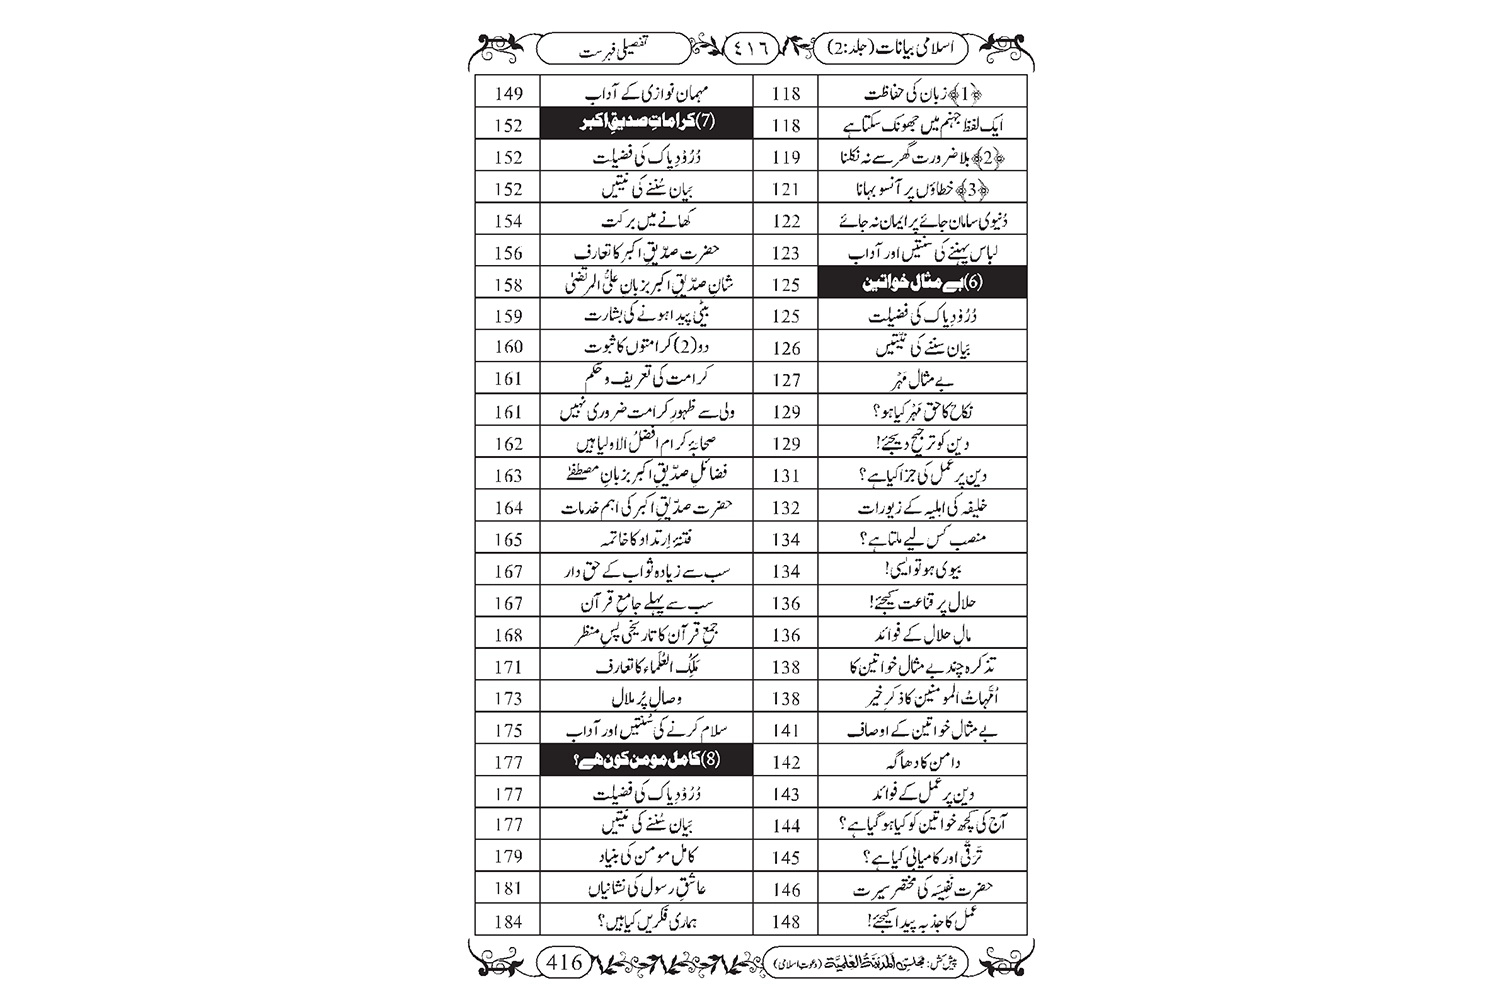 اسلامی بیانات (جلد:2) ٤١٦ تفصیلی فہرست
﴿1﴾ زبان کی حفاظت 118
ایک لفظ جہنم میں جھونک سکتا ہے 118
﴿2﴾ بلا ضرورت گھر سے نہ نکلنا 119
﴿3﴾ خطاؤں پر آنسو بہانا 121
دُنیوی سامان جائے پر ایمان نہ جائے 122
لباس پہننے کی سنتیں اور آداب 123
(6) بے مثال خواتین 125
دُرُوْدِ پاک کی فضیلت 125
بَیان سننے کی نیّتیں 126
بے مثال مَہْر 127
نکاح کا حق مَہْر کیا ہو؟ 129
دین کو ترجیح دیجئے! 129
دین پر عمل کی جزا کیا ہے؟ 131
خلیفہ کی اہلیہ کے زیورات 132
منصب کس لیے ملتا ہے؟ 134
بیوی ہو تو ایسی! 134
حلال پر قناعت کیجئے! 136
مالِ حلال کے فوائد 136
تذکرہ چند بے مثال خواتین کا 138
اُمَّہاتُ المومنین کا ذکرِ خیر 138
بے مثال خواتین کے اوصاف 141
دامن کا دھاگہ 142
دین پر عمل کے فوائد 143
آج کی کچھ خواتین کو کیا ہو گیا ہے؟ 144
تَرَقّی اور کامیابی کیا ہے؟ 145
حضرت نَفِیسَہ کی مختصر سیرت 146
عمل کا جذبہ پیدا کیجئے! 148
مہمان نوازی کے آداب 149
(7) کراماتِ صدیقِ اکبر 152
دُرُوْدِ پاک کی فضیلت 152
بَیان سُننے کی نیّتیں 152
کھانے میں برکت 154
حضرت صدّیقِ اکبر کا تعارف 156
شانِ صدّیقِ اکبر بزبانِ علیُّ المرتضیٰ 158
بیٹی پیدا ہونے کی بشارت 159
دو (2) کرامتوں کا ثبوت 160
کرامت کی تعریف و حکم 161
ولی سے ظہورِ کرامت ضروری نہیں 161
صحابۂ کرام افضلُ الاولیا ہیں 162
فضائلِ صدّیقِ اکبر بزبانِ مصطفےٰ 163
حضرت صدّیقِ اکبر کی اہم خدمات 164
فتنۂ اِرتداد کا خاتمہ 165
سب سے زیادہ ثواب کے حق دار 167
سب سے پہلے جامعِ قرآن 167
جمعِ قرآن کا تاریخی پسِ منظر 168
مَلِکُ العُلَماء کا تعارف 171
وصالِ پُر ملال 173
سلام کرنے کی سُنتیں اور آداب 175
(8) کامل مومن کون ہے؟ 177
دُرُوْدِ پاک کی فضیلت 177
بَیان سُننے کی نیّتیں 177
کامل مومن کی بنیاد 179
عاشقِ رسول کی نشانیاں 181
ہماری فکریں کیا ہیں؟ 184
پیش کش: مجلس المدینۃ العلمیۃ (دعوتِ اسلامی) 416